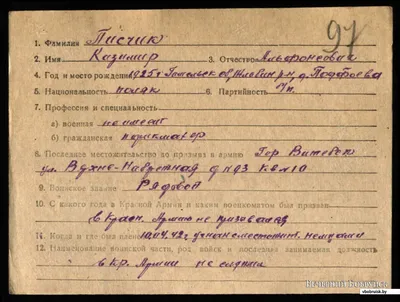 97
1. Фамилия Писчик
2. Имя Казимир 3. Отчество Альфонсович
4. Год и место рождения 1925 г Гомельск. обл, Жлобин р-н, д.
5. Национальность поляк 6. Партийность б/п.
7. Профессия и специальность
а) военная не имеет
б) гражданская парикмахер
8. Последнее местожительство до призыва в армию Гор Витебск
ул. д №3 кв №10
9. Воинское звание Рядовой
10. С какого года в Красной Армии и каким военкоматом был призван
в Красн. Армию не призывался
11. Когда и где взят в плен 10.04.42 г.
12. Наименование воинской части, род войск и последняя занимаемая должность
в Кр. Армии не служил
vitebsk.by